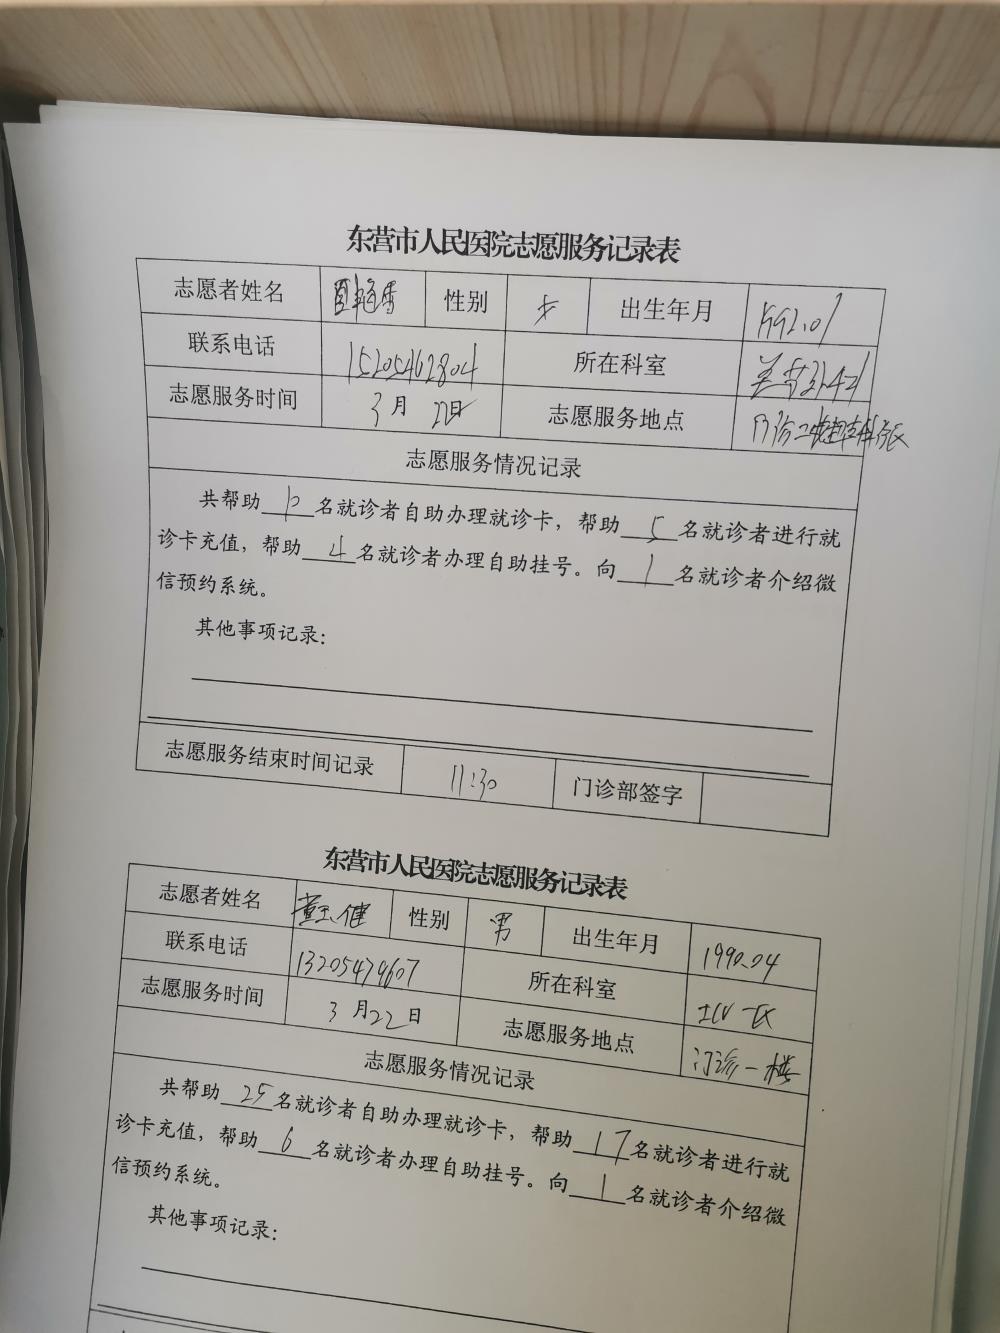 东营市人民医院志愿服务记录表
志愿者姓名 性别 女 出生年月 1992.01
联系电话 15205462804 所在科室
志愿服务时间 3月22日 志愿服务地点 门诊二楼
志愿服务情况记录
共帮助 6 名就诊者自助办理就诊卡，帮助 5 名就诊者进行就
诊卡充值，帮助 4 名就诊者办理自助挂号。向 1 名就诊者介绍微
信预约系统。
其他事项记录：
志愿服务结束时间记录 11:30 门诊部签字
东营市人民医院志愿服务记录表
志愿者姓名 黄玉健 性别 男 出生年月 1990.04
联系电话 13205479607 所在科室
志愿服务时间 3月22日 志愿服务地点 门诊一楼
志愿服务情况记录
共帮助 25 名就诊者自助办理就诊卡，帮助 17 名就诊者进行就
诊卡充值，帮助 6 名就诊者办理自助挂号。向 1 名就诊者介绍微
信预约系统。
其他事项记录：